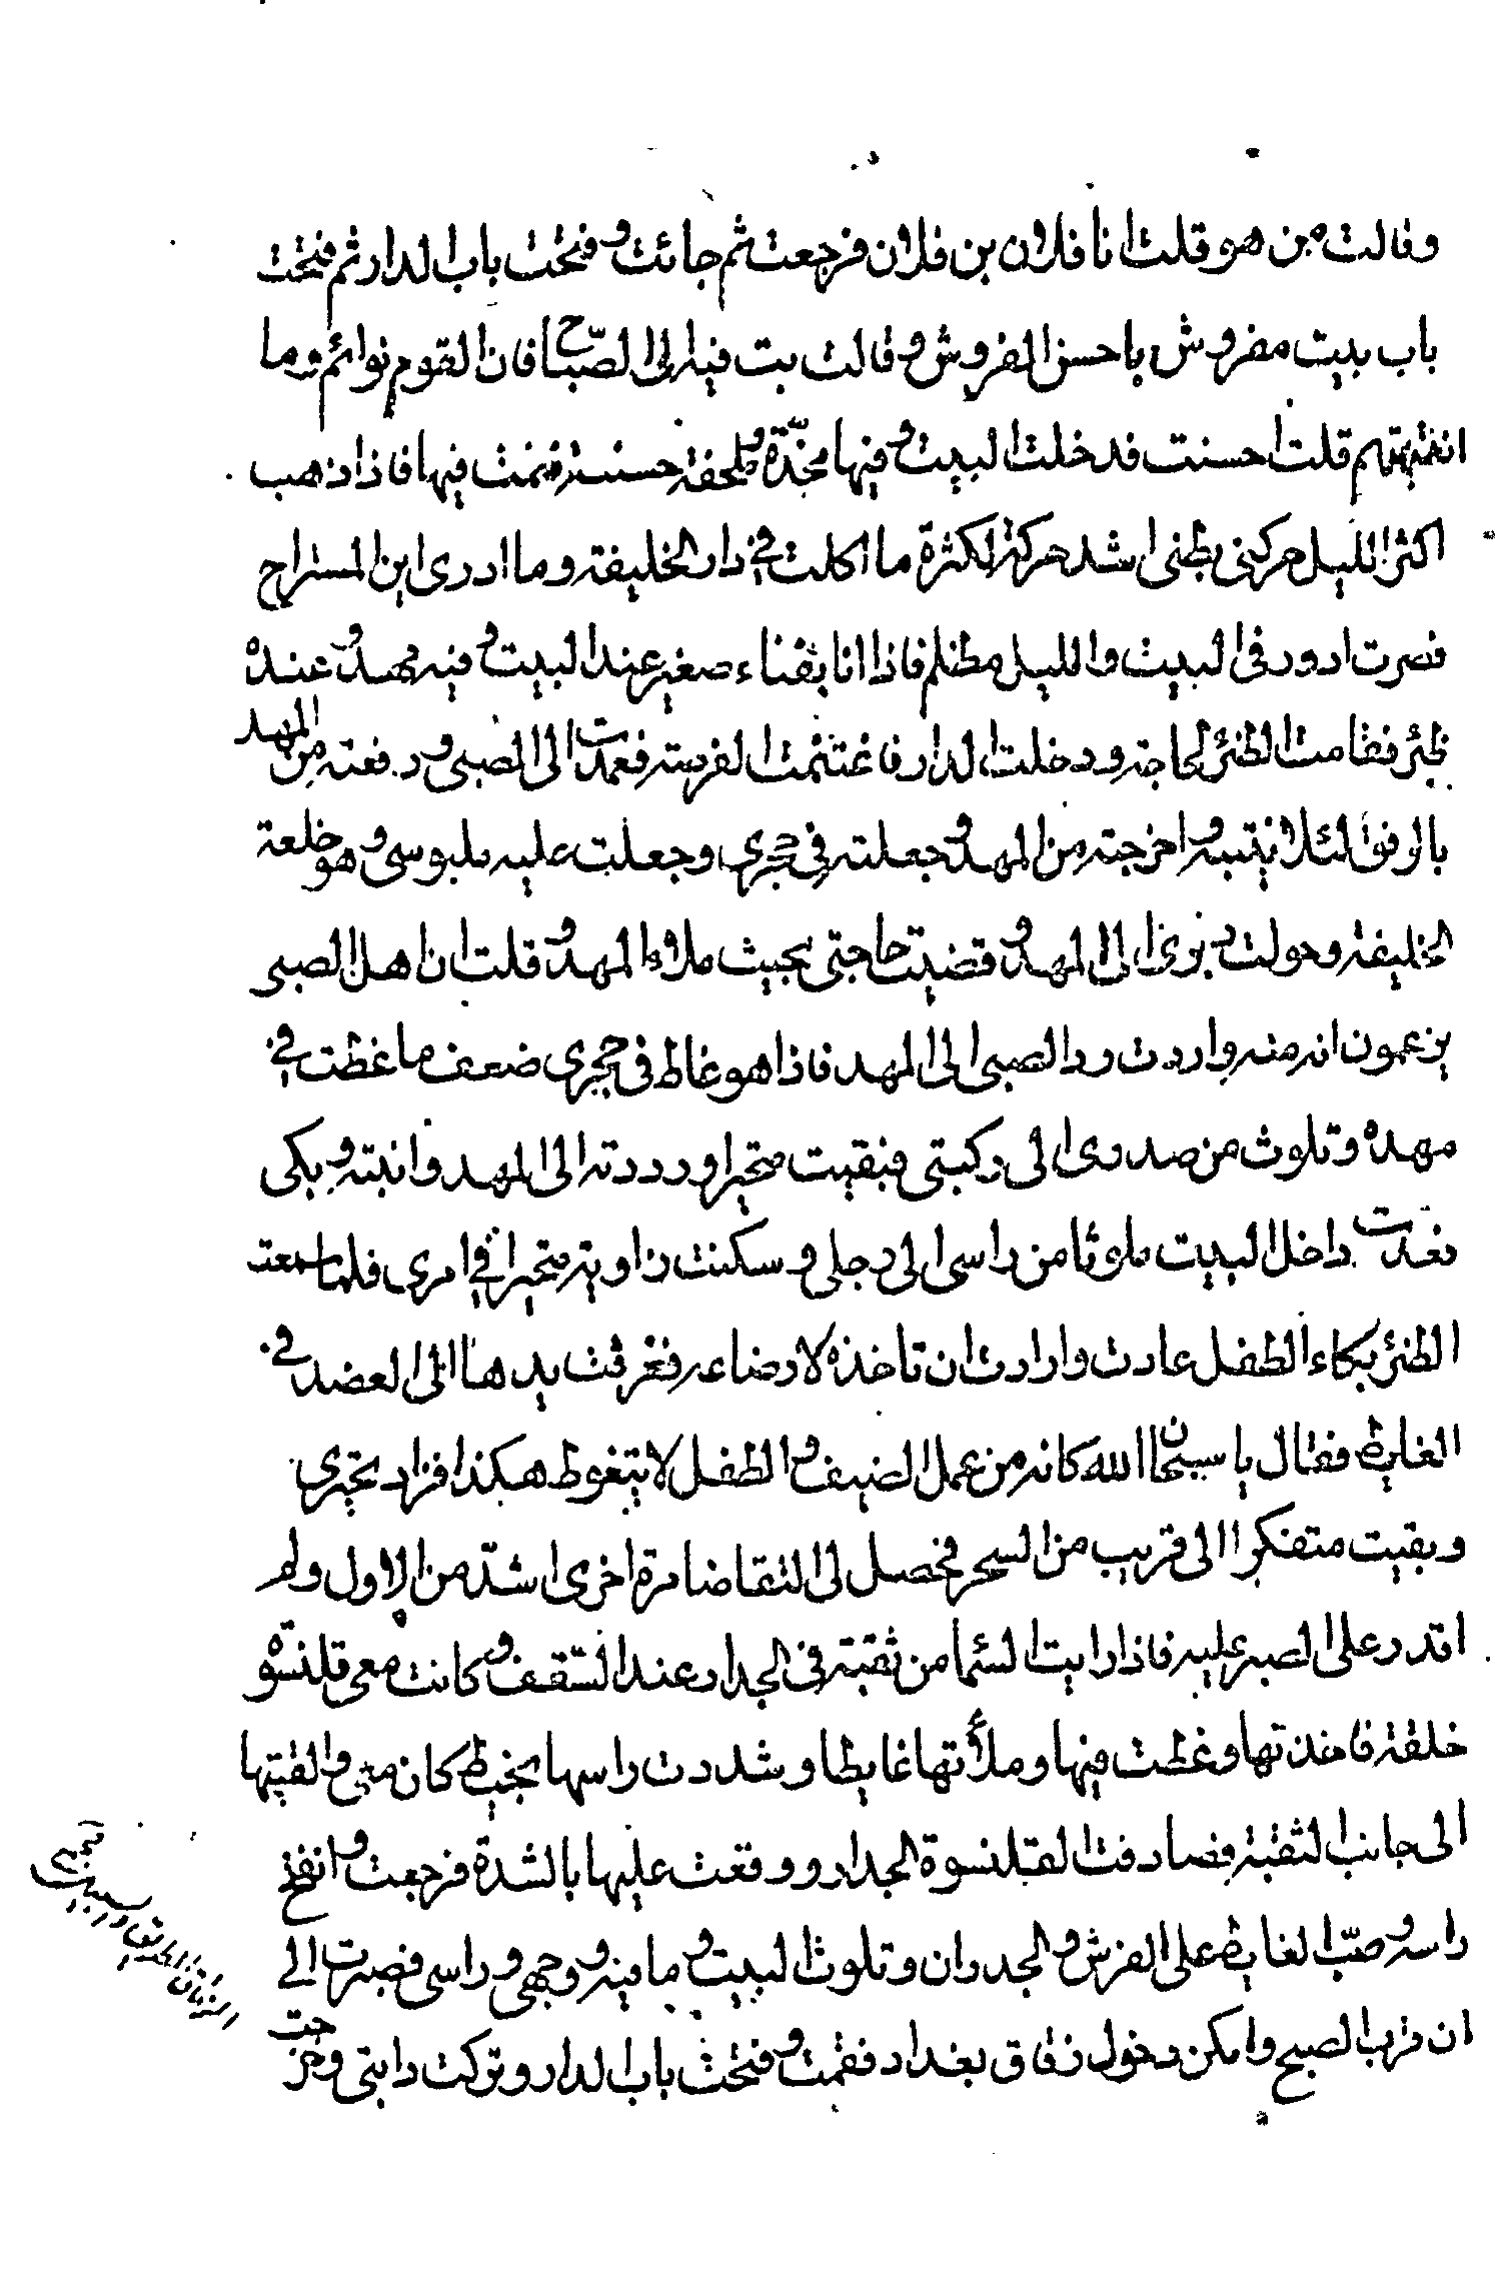 وقالت من هو قلت انا فلان بن فلان فرجعت ثم جائت وفتحت باب الدار ثم فتحت
باب بيت مفروش باحسن الفروش وقالت بت فيه الى الصّباح فان القوم نوائم وما
انتهتهم قلت احسنت فدخلت البيت وفيها مخدّة وملحفة حسنة فنمت فيها فاذا ذهب
اكثر الليل حركنى بطنى اشد حركة لكثرة ما اكلت في دار الخليفة وما ادرى اين المستراح
فصرت ادور فى البيت والليل مظلم فاذا انا بفناء صغير عند البيت وفيه مهد وعنده
ظئر فقامت الظئر لحاجة ودخلت الدار فاغتنمت الفرصة فعمدت الى الصبى ورفعته من المهد
بالرفق لئلا ينتبه واخرجته من المهد وجعلته في حجرى وجعلت عليه ملبوسى وهو خلعة
الخليفة وحولت دبرى الى المهد وقضيت حاجتى بحيث ملاء المهد وقلت ان اهل الصبى
يزعمون انه منه واردت رد الصبى الى المهد فاذا هو غاط فى حجرى ضعف ما غطت في
مهده وتلوث من صدرى الى ركبتى فبقيت متحيرا ورددته الى المهد وانتبه وبكى
فعدت داخل البيت ملوثا من راسى الى رجلى وسكنت زاوية متحيرا في امرى فلما سمعت
الظئر بكاء الطفل عادت وارادت ان تاخذه لارضاعه فغرقت يدها الى العضد في
الغايط فقال يا سبحان الله كانه من عمل الضيف والطفل لا يتغوط هكذا فزاد تحيرى
وبقيت متفكرا الى قريب من السحر فحصل لى التقاضا مرة اخرى اشدّ من الاول ولم
اقدر على الصبر عليه فاذا رايت السّما من ثقبة في الجدار عند السّقف وكانت معى قلنسوة
خلقة فاخذتها وغطت فيها وملأتها غايطا وشددت راسها بخيط كان معى والقيتها
الى جانب الثقبة فصادفت القلنسوة الجدار ووقعت عليها بالشدة فرجعت وانفتح
راسه وصبّ الغايط على الفرش والجدران وتلوث البيت وما فيه ووجهى وراسى فصبرت الى
ان قرب الصبح وامكن دخول زقاق بغداد فقمت وفتحت باب الدار وتركت دابتى وخرجت